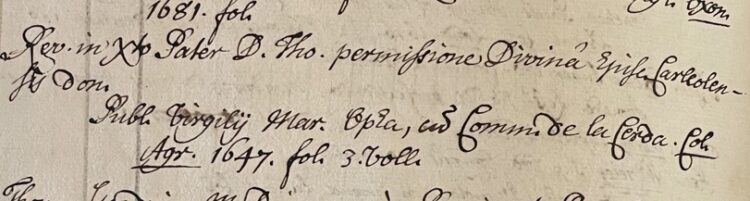 1681. fol. Oxon
Rev. in Xto Pater D. Tho. permissione Divinâ Episc. Carleolen-
sis don.
Publ. Virgilij Mar. Opãa, cũ Comm. de la Cerda. Col.
Agr. 1647. fol. 3. Voll.